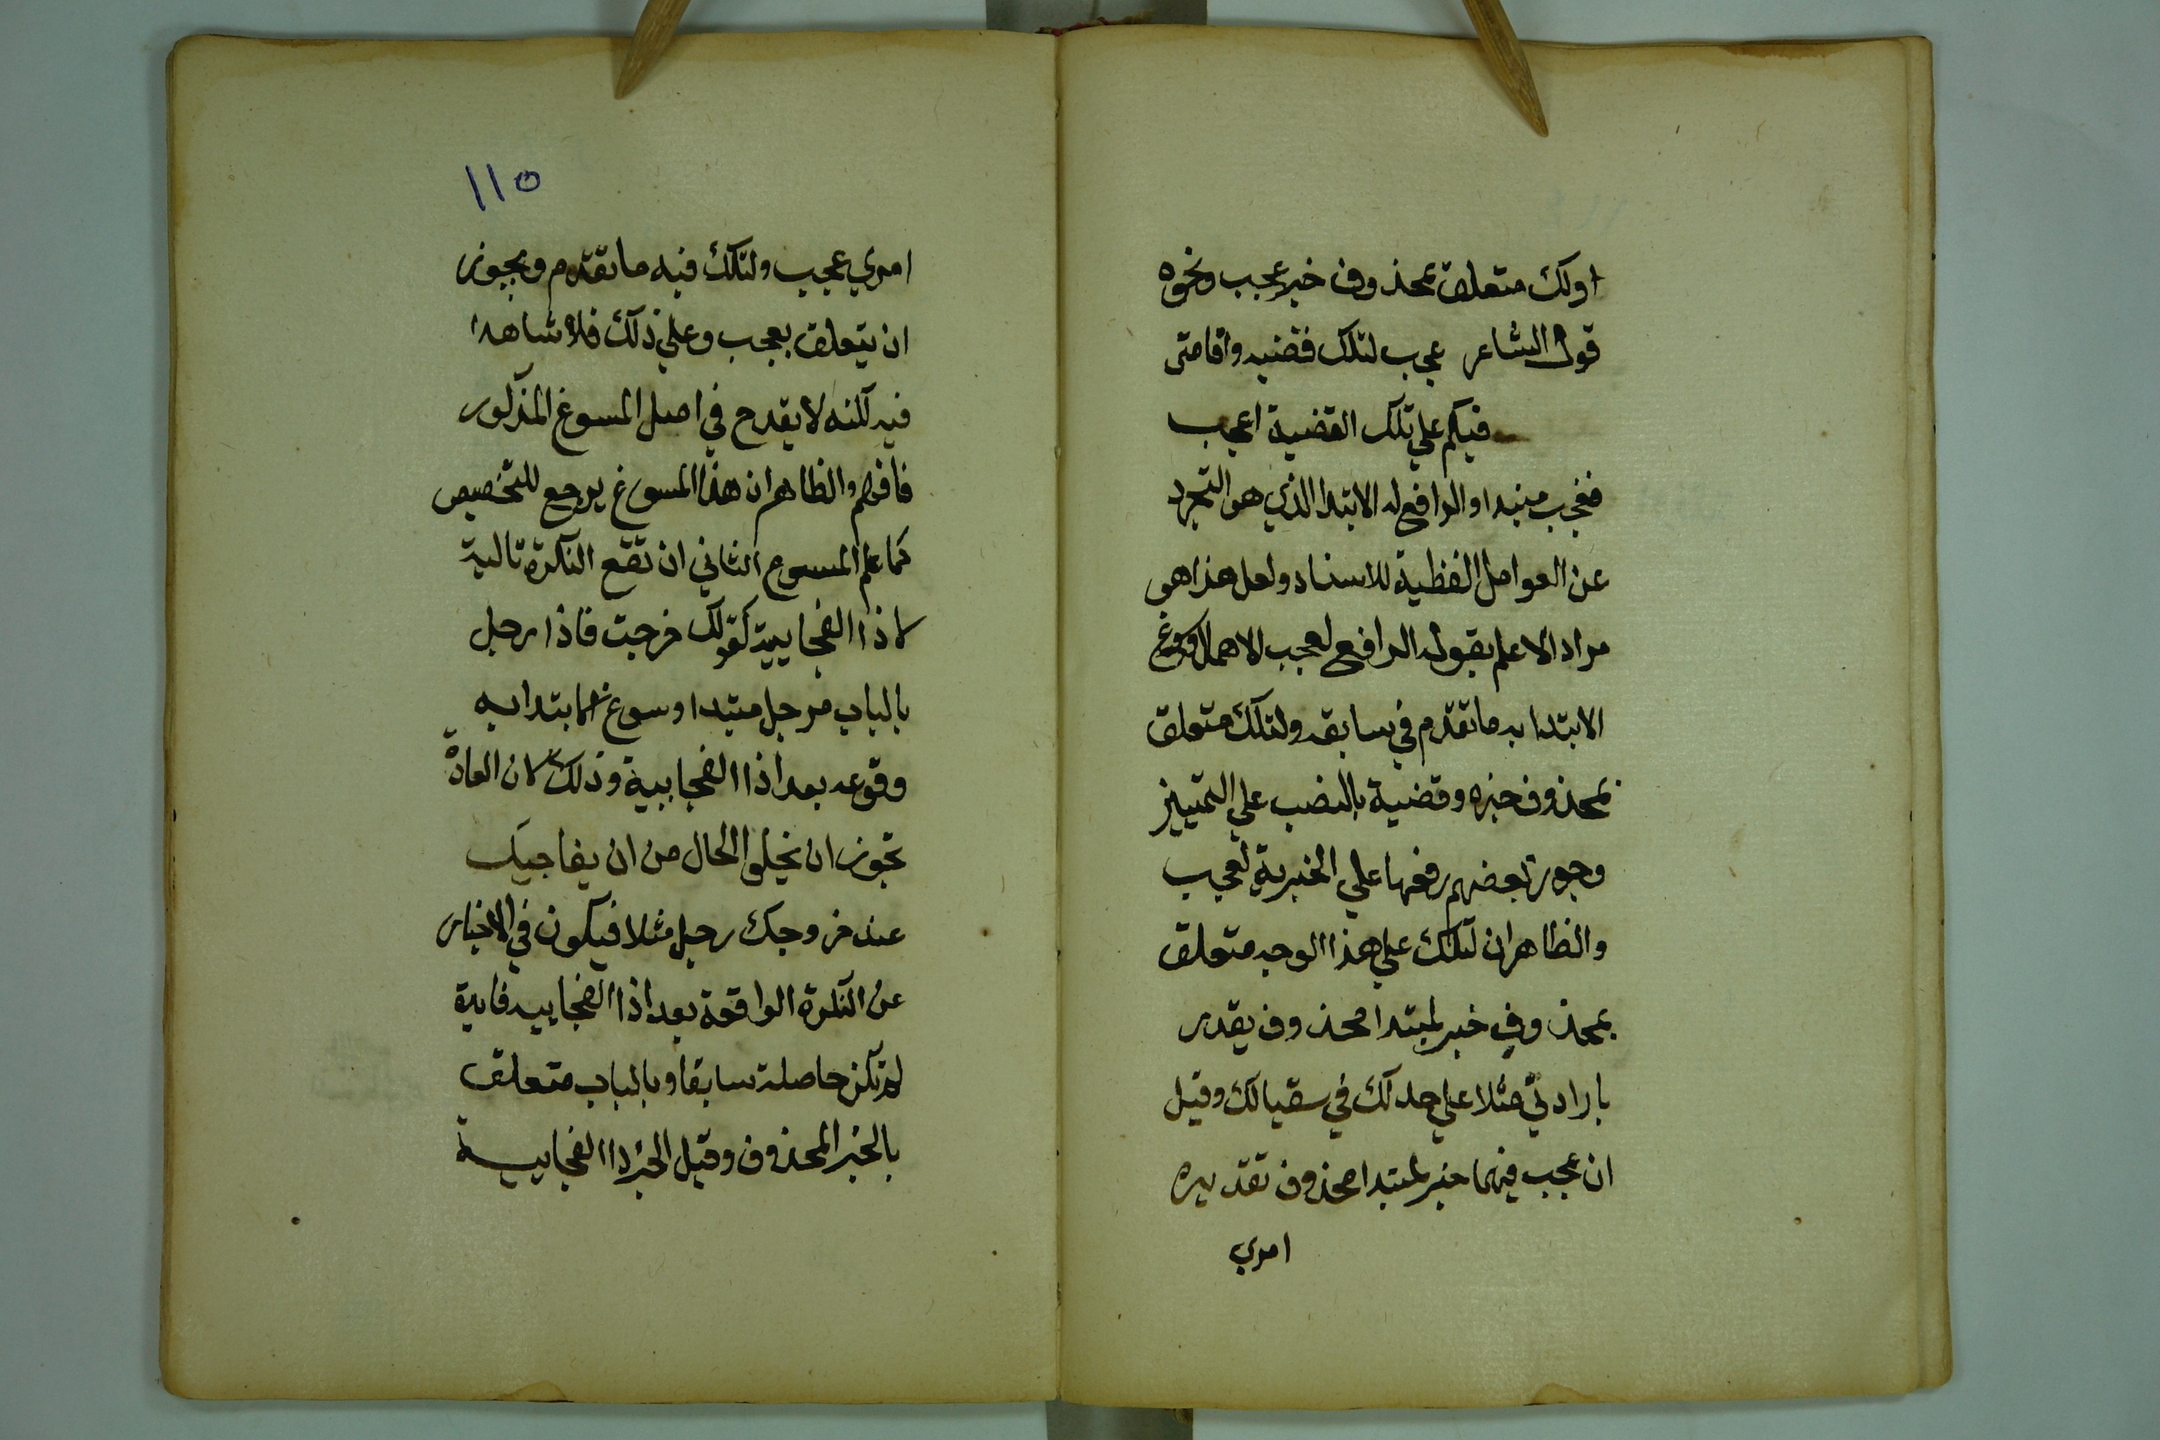 اولك متعلق بمحذوف خبر عجب ونحوه
قول الشاعر عجب لتلك قضيه واقامتى
فيكم علي تلك القضية اعجب
فعجب مبتدا والرافع له الابتدا الذي هو التجرد
عن العوامل اللفظية للاسناد ولعل هذا هو
مراد الاعلم بقوله الرافع لعجب الاهمال وسوغ
الابتدا به ما تقدم في سابقه ولتلك متعلق
بمحذوف خبره وقضية بالنصب علي التمييز
وجوز بعضهم رفعها علي الخبرية لعجب
والظاهر ان لتلك علي هذا الوجه متعلق
بمحذوف خبر لمبتدا محذوف يقدر
بارادتي مثلا علي حد لك في سقيا لك وقيل
ان عجب فيهما خبر لمبتدا محذوف تقديره
امري
١١٥
امري عجيب ولتلك فيه ما تقدم ويجوز
ان يتعلق بعجب وعلي ذلك فلا شاهد
فيه لكنه لا يقدح في اصل المسوغ المذكور
فافهم والظاهر ان هذا المسوغ يرجع للتخصيص
كما علم المسوغ الثاني ان تقع النكرة تالية
لاذا الفجاييه كقولك خرجت فاذا رجل
بالباب فرجل مبتدا وسوغ الابتدا به
وقوعه بعد اذا الفجايية وذلك لان العادة
تجوز ان يخلو الحال من ان يفاجيك
عند خروجك رجل مثلا فيكون في الاخبار
عن النكرة الواقعة بعد اذا الفجاييه فايدة
لم تكن حاصلة سابقا وبالباب متعلق
بالخبر المحذوف وقيل الخبر اذا الفجايية